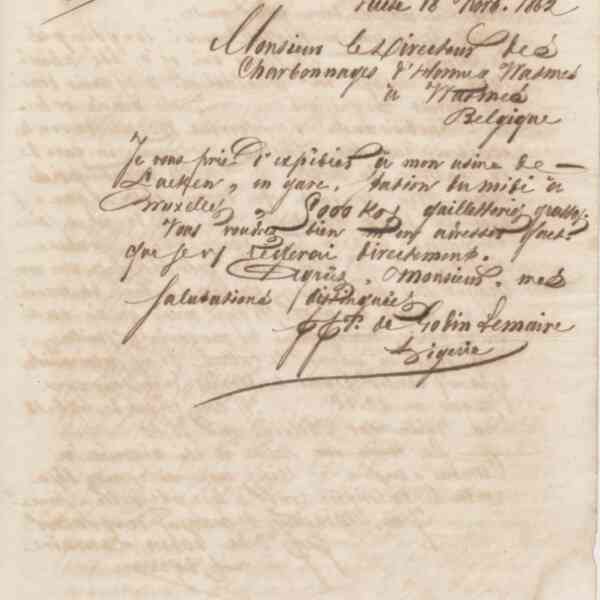 18 Nov. 1862
Monsieur le Directeur des
Charbonnages d'Hornu & Wasmes
à Wasmes
Belgique
Je vous prie d'expédier à mon usine de —
Laeken, en gare, station du midi à
Bruxelles, 5000 Kos gailletteries grasses.
Vous voudrez bien m'en adresser fact.
que je réglerai directement.
Agréez, Monsieur, mes
salutations distinguées
de Gobin Lemaire